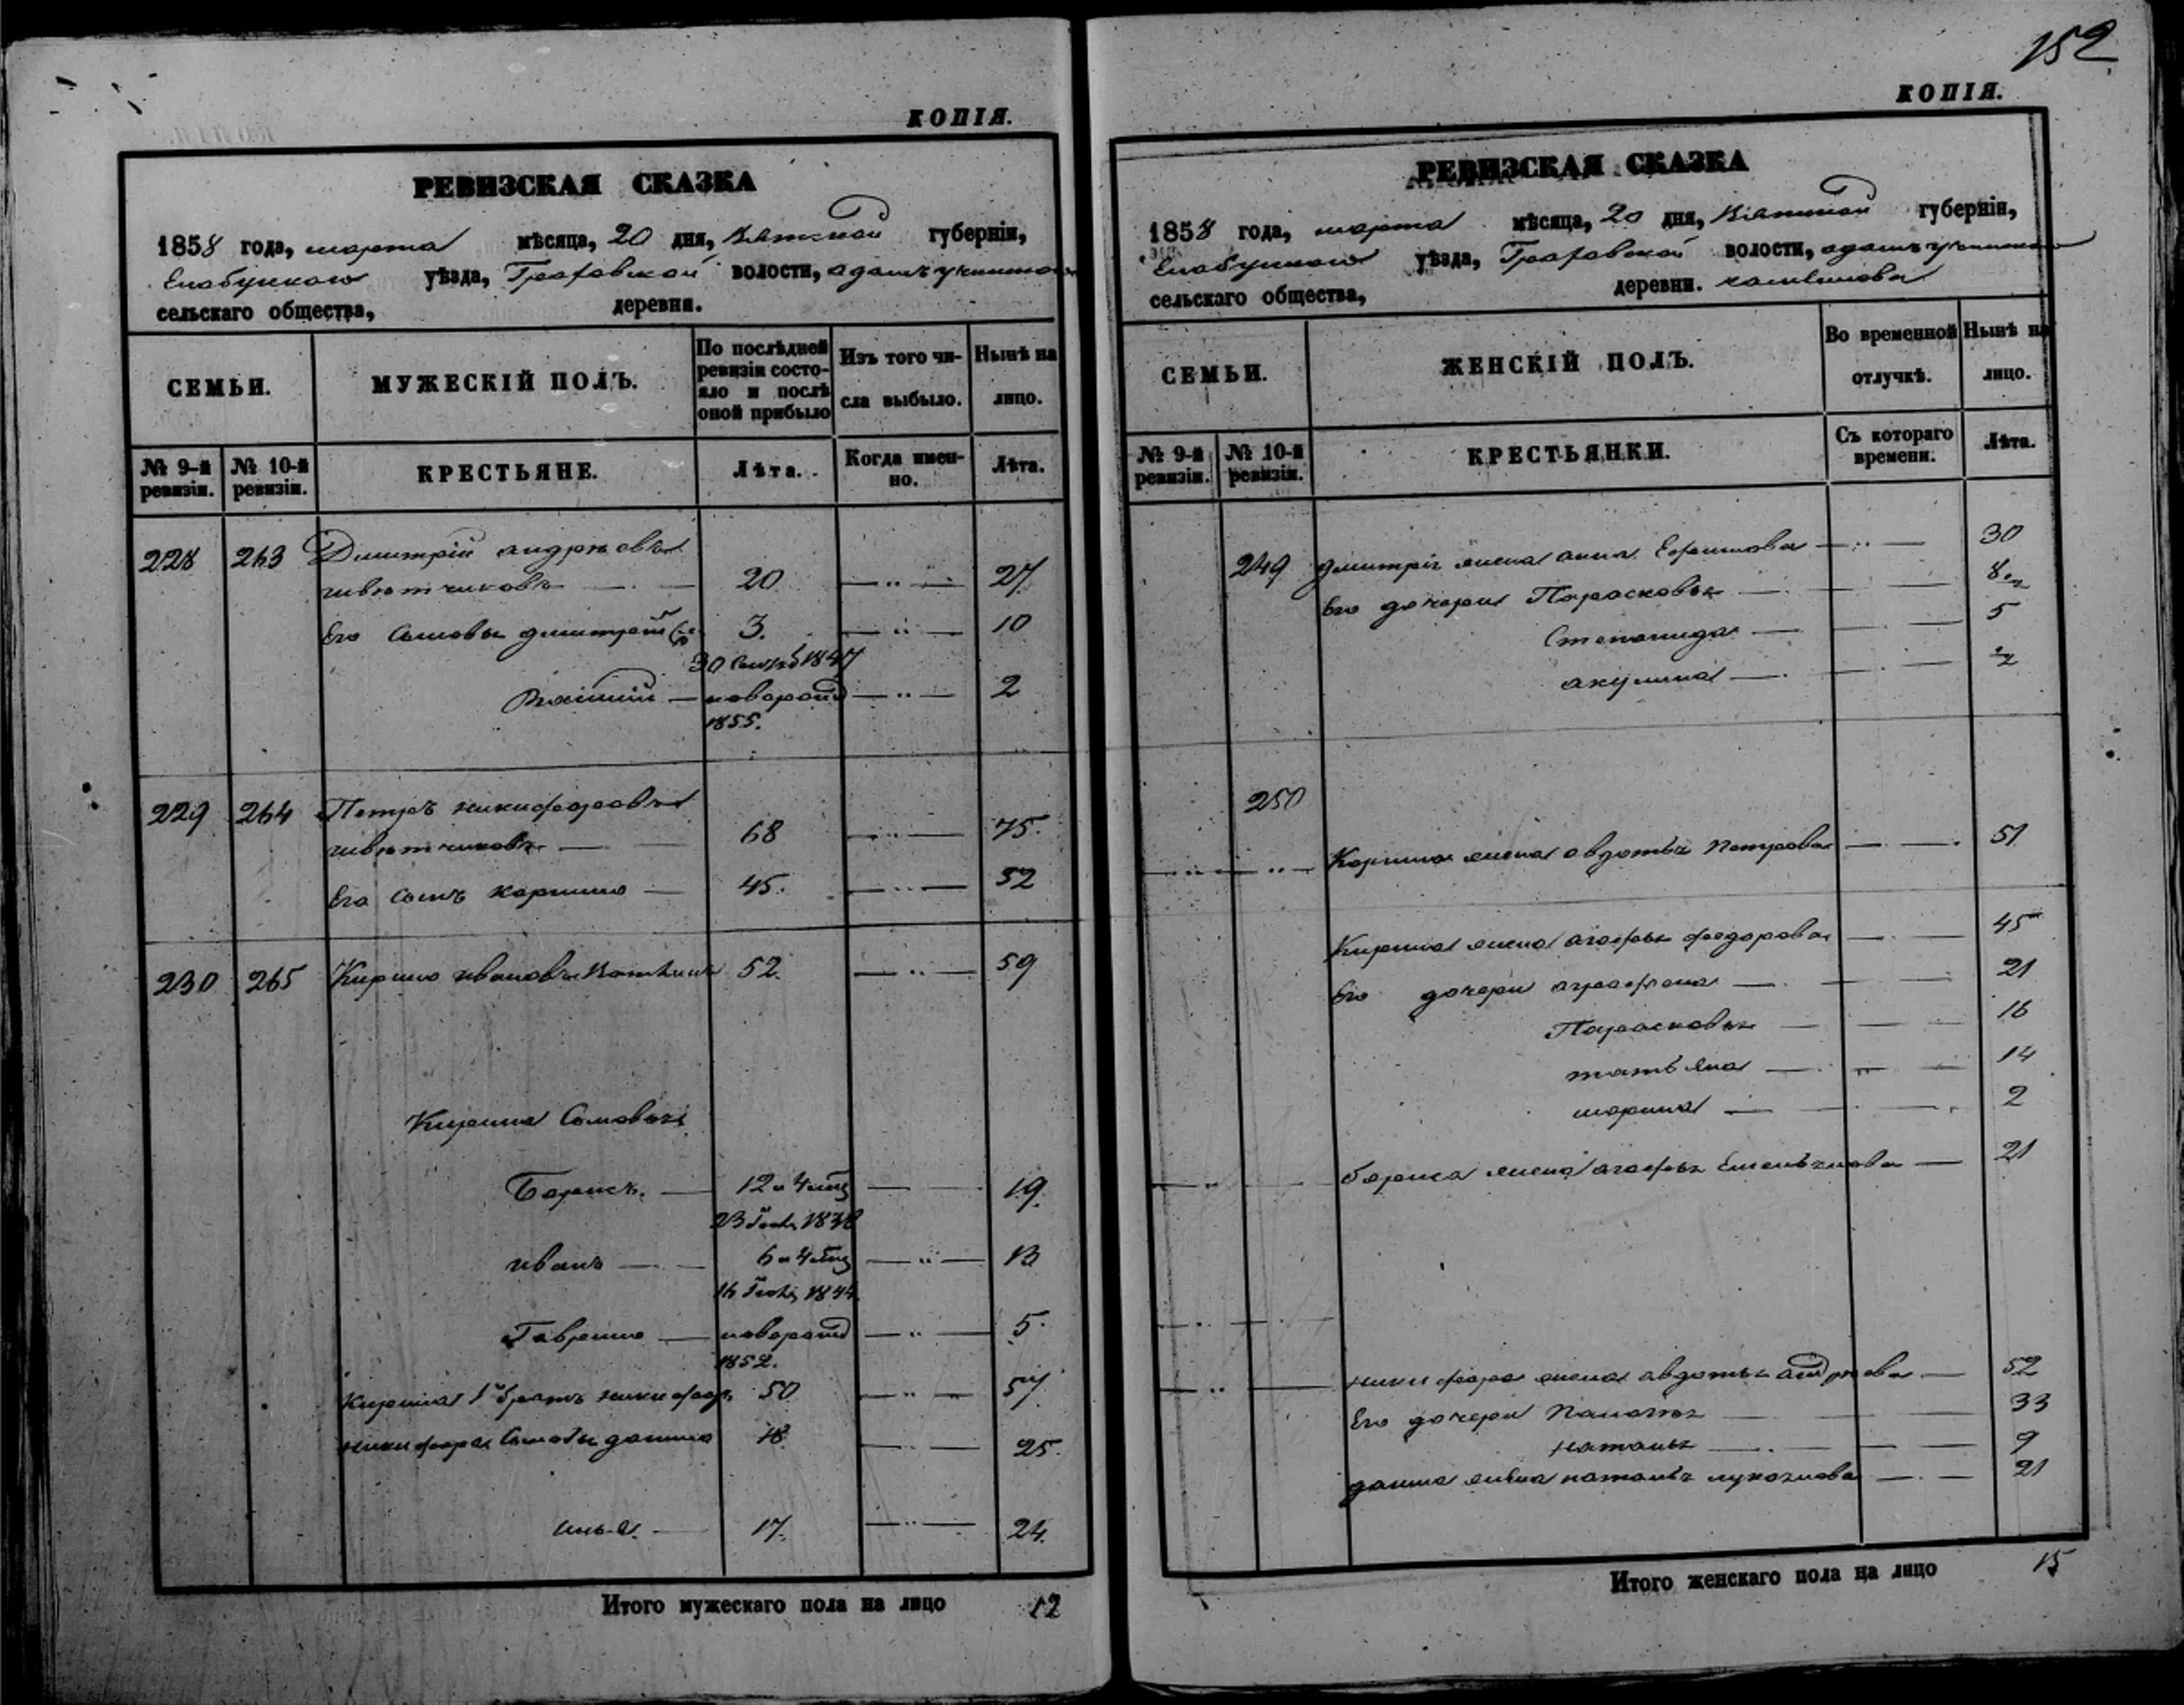 КОПІЯ.
РЕВИЗСКАЯ СКАЗКА
1858 года, марта мѣсяца, 20 дня, Вятской губерніи,
Елабужскаго уѣзда, Граховской волости,
сельскаго общества, деревни.
СЕМЬИ.
МУЖЕСКІЙ ПОЛЪ.
По послѣдней ревизіи состояло и послѣ оной прибыло
Изъ того числа выбыло.
Нынѣ на лицо.
№ 9-й ревизіи.
№ 10-й ревизіи.
КРЕСТЬЯНЕ.
Лѣта.
Когда именно.
Лѣта.
228 263 Дмитрій андрѣевъ
20 27
Его сыновья дмитрей 3. 10
1847
новорожд 2
1855.
229 264 Петръ никифоровъ
68 75
Его сынъ карпило 45. 52
230 265 Кирило ивановъ 52. 59
Кирила Сыновья
Борисъ. 12 и 4 мѣс 19.
23 1838
иванъ 6 и 4 мѣс 13
16 1844
Гаврило новорожд 5.
1852.
Кирила 1й братъ никифоръ 50 57
никифора Сыновья данило 18 25.
илья. 17. 24.
Итого мужескаго пола на лицо 12
152
КОПІЯ.
РЕВИЗСКАЯ СКАЗКА
1858 года, марта мѣсяца, 20 дня, Вятской губерніи,
Елабужскаго уѣзда, Граховской волости,
сельскаго общества, деревни.
СЕМЬИ.
ЖЕНСКІЙ ПОЛЪ.
Во временной отлучкѣ.
Нынѣ на лицо.
№ 9-й ревизіи.
№ 10-й ревизіи.
КРЕСТЬЯНКИ.
Съ котораго времени.
Лѣта.
249 дмитрія жена анна Ефимова 30
Его дочери Парасковья
Степанида 5
акулина
250
Карпила жена авдотья Петрова 51
Кирила жена агафья федорова 45
Его дочери аграфена 21
Парасковья 16
татьяна 14
марина 2
бориса жена агафья Емельянова 21
никифора жена авдотья андрѣева 52
Его дочери Палагѣя 33
наталья 9
данила жена наталья лукоянова 21
Итого женскаго пола на лицо 15